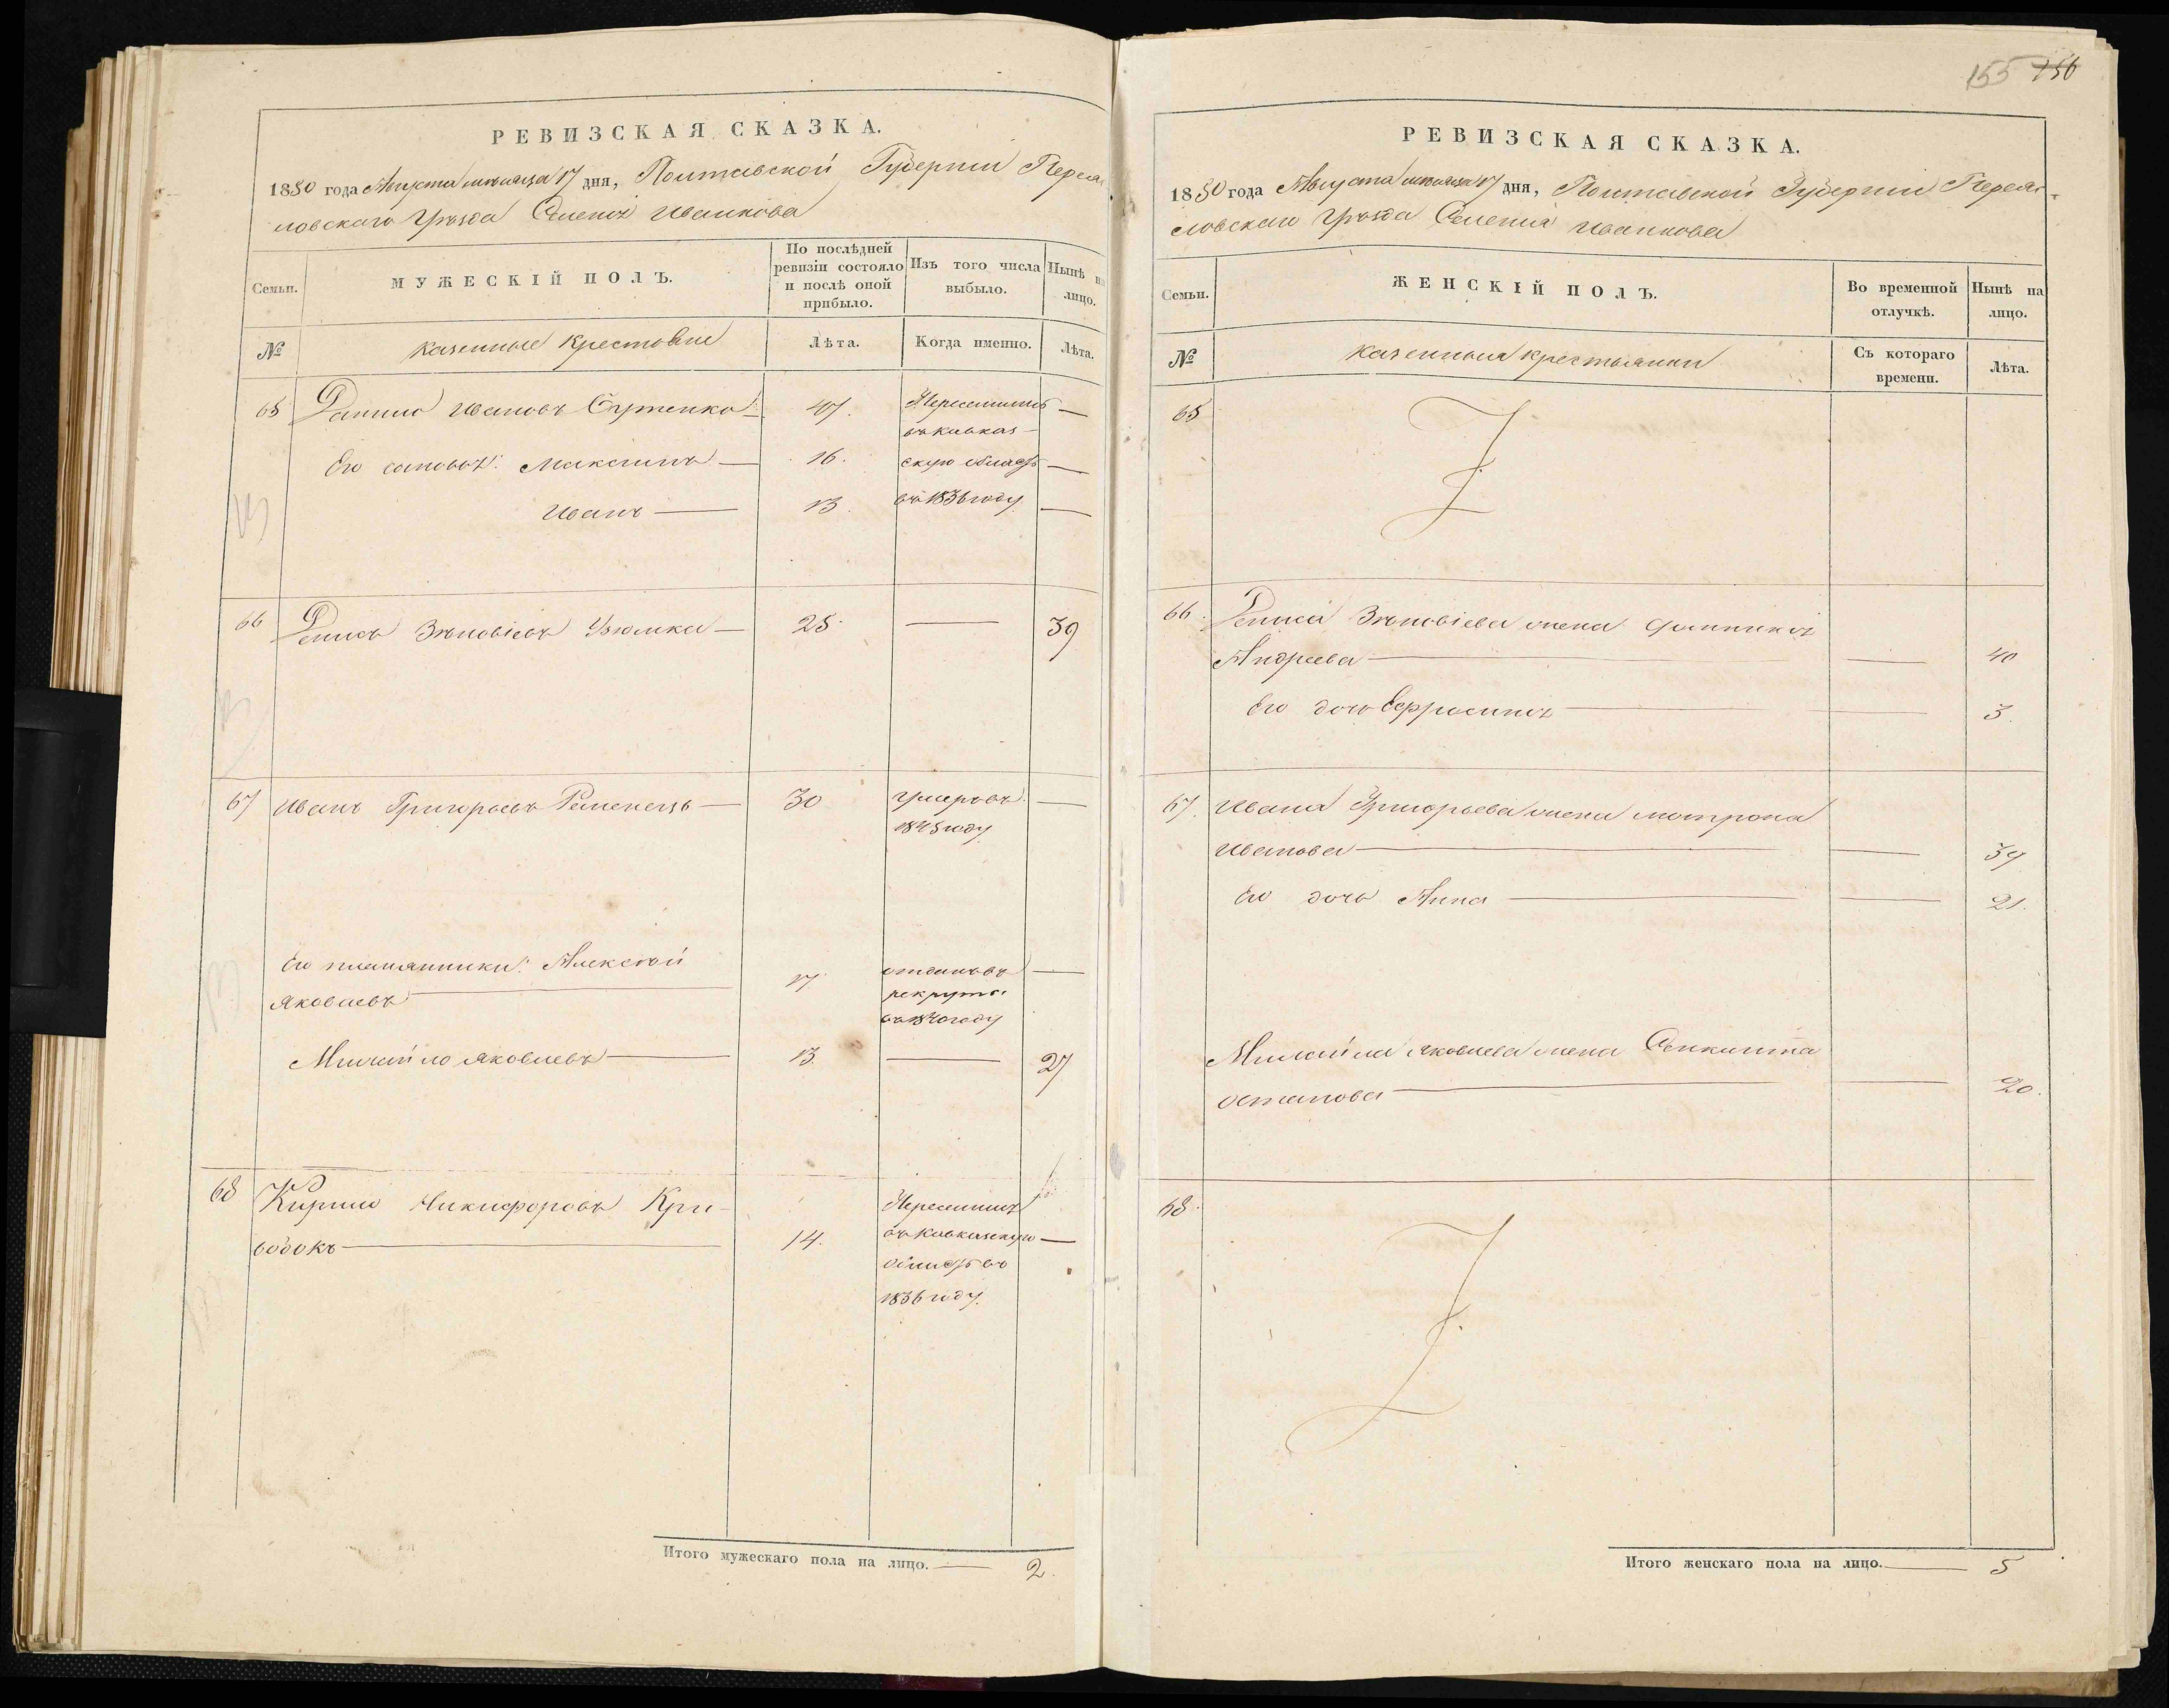 155 156
РЕВИЗСКАЯ СКАЗКА.
1850 года Августа месяца 17 дня, Полтавской Губерніи Перея-
словскаго Уѣзда Селенія Иванкова
Семьи.
МУЖЕСКІЙ ПОЛЪ.
По послѣдней ревизіи состояло и послѣ оной прибыло.
Изъ того числа выбыло.
Нынѣ на лицо.
№
казенные крестьяне
Лѣта.
Когда именно.
Лѣта.
65 Данило Ивановъ 47. Переселились —
въ кавказ-
Его сыновья: Максимъ — 16. скую область —
Иванъ — 13. въ 1836 году —
66 Денисъ Зѣновіевъ — 25. — 39
67 Иванъ Григорьевъ Ременецъ — 30 умеръ въ —
1845 году
Его племянники: Алексѣй
Яковлевъ — 17 отданъ въ —
рекруты
въ 1840 году
Михайло Яковлевъ — 13. — 27
68 Кирило Никифоровъ Кри-
водокъ — 14. Переселился
въ Кавказскую —
область въ
1836 году.
Итого мужескаго пола на лицо. — 2.
РЕВИЗСКАЯ СКАЗКА.
1850 года Августа месяца 17 дня, Полтавской Губерніи Перея-
словскаго Уѣзда Селенія Иванкова
Семьи.
ЖЕНСКІЙ ПОЛЪ.
Во временной отлучкѣ.
Нынѣ на лицо.
№
казенныя крестьянки
Съ котораго времени.
Лѣта.
65
66. Дениса Зѣновіева жена
Андреева — — 40
Его дочь Ефросинія — — 3.
67. Ивана Григорьева жена Мотрона
Иванова — — 39
Его дочь Анна — — 21.
Михайла Яковлева жена
Остапова — — 20.
68.
Итого женскаго пола на лицо. — 5